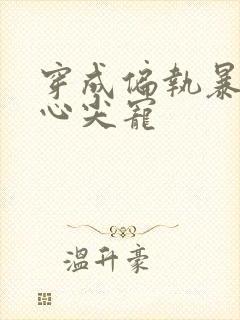 穿成偏執暴
心尖寵
溫升豪